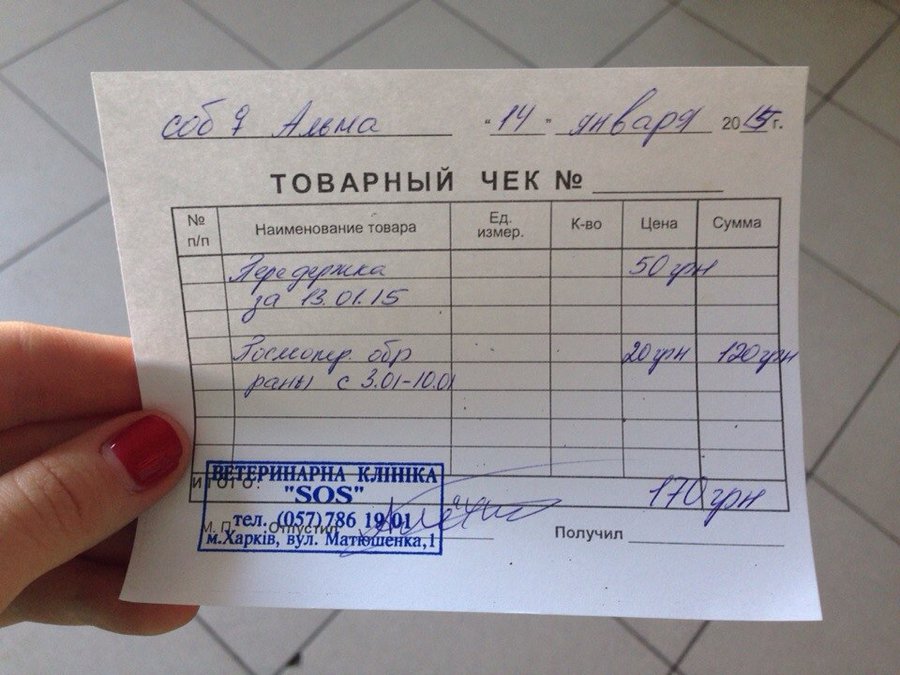 соб ♀ Альма "14" января 2015г.
ТОВАРНЫЙ ЧЕК №
№ п/п Наименование товара Ед. измер. К-во Цена Сумма
Передержка 50 грн
за 13.01.15
Послеопер. обр 20 грн 120 грн
раны с 3.01-10.01
ИТОГО: 170 грн
ВЕТЕРИНАРНА КЛІНІКА
"SOS"
М.П. Отпустил Получил
тел. (057) 786 19 01
м.Харків, вул. Матюшенка,1